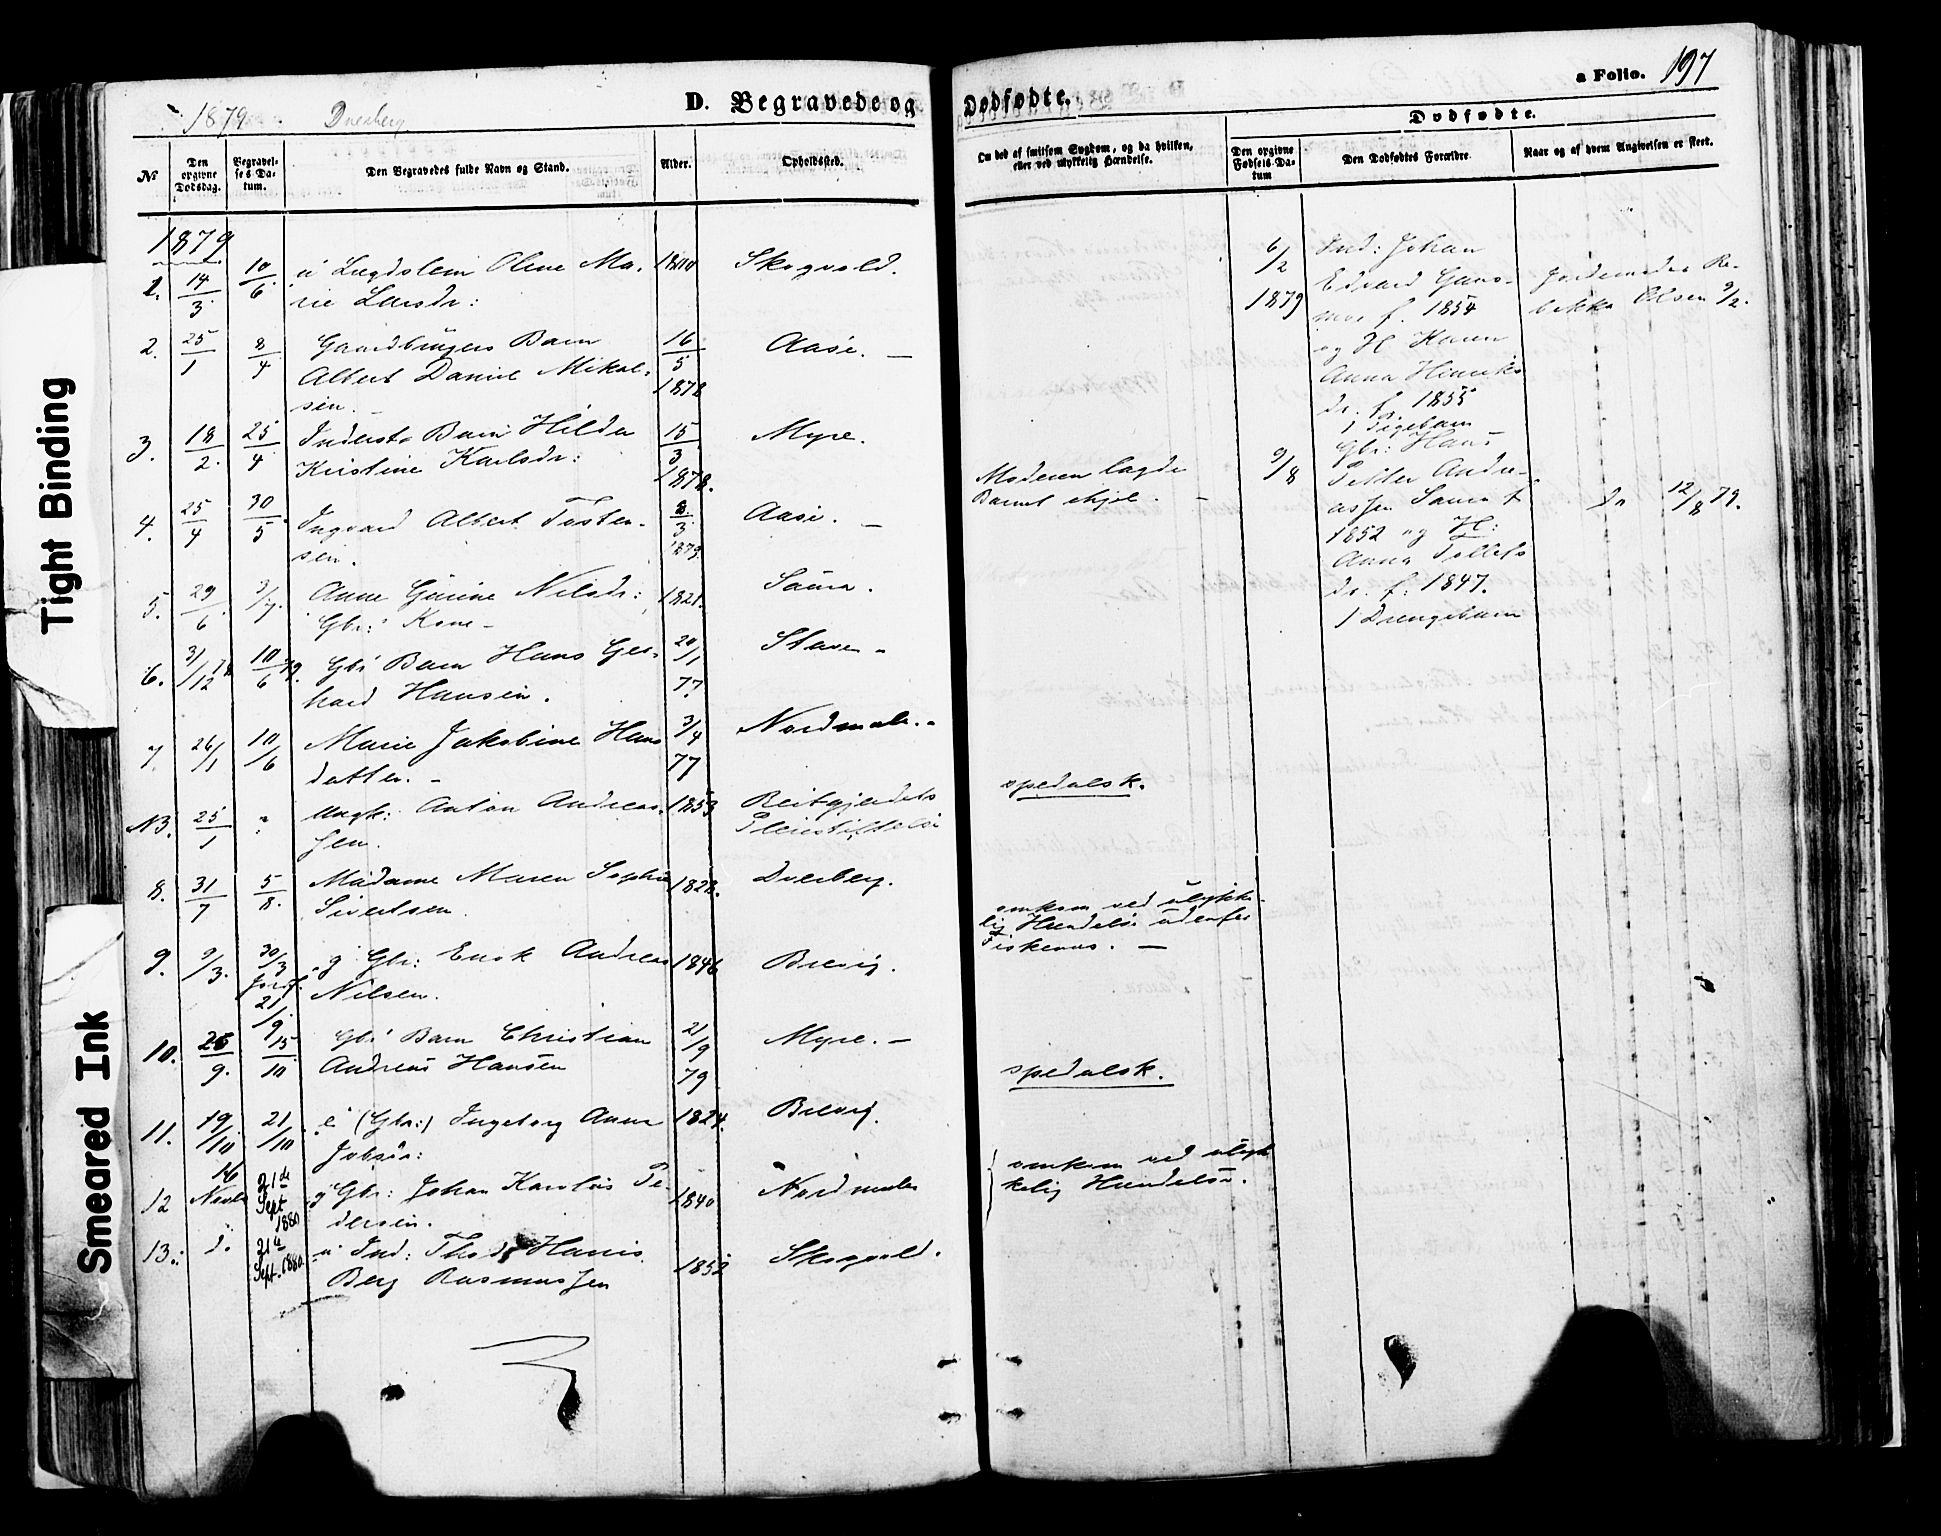 1879. Dverberg.
D. Begravede og
Dødfødte.
a Folio. 197
Dødfødte.
№
Den opgivne Dødsdag.
Begravelses Datum.
Den Begravedes fulde Navn og Stand.
Alder.
Opholdssted.
Om død af smitsom Sygdom, og da hvilken, eller ved ulykkelig Hændelse.
Den opgivne Fødsels Datum
Den Dødfødtes Forældre.
Naar og af hvem Angivelsen er skeet.
1879
1. 14/3 10/6 Olene Ma- Skogvold.
rie Larsdr:
2. 25/1 8/4 Gaardbrugers Barn 16/5 Aase. —
Albert Daniel Mikal- 1878
sen. —
3. 18/2. 25/4 Inderst. Barn Hilda 15/3 Myre.
Kristine Karlsdr: 1878.
4. 25/4 30/5. Ingvard Albert Tosten- 8/3 Aase. —
sen. 1879.
5. 29/6. 3/7. Anne Nilsdr: 1821. Saura.
Gbr: Kone —
6. 31/12 78 10/6 79. Gbr Barn Hans Ger- 20/1 Stave. -
hard Hansen. 77.
7 26/1 10/6 Marie Jakobine Hans 3/4 Nordmele. -
datter. — 77
NB. 25/1 " Ungk: Anton Andreas- 1853 Reitgjerdets
sen. Pleiestiftelse
spedalsk.
8. 31/7 5/8. Madame Maren Sophie 1828. Dverberg.
Sivertsen.
9. 9/3. 30/3 g Gbr: Erik Andreas 1846 Brevig.
Jordf. 21/9. Nilsen.
omkom ved ulykke-
lig Hændelse udenfor
Fiskenes. —
10. 26/9. 15/10 Gbr Barn Christian 21/9 Myre. —
Andreas Hansen 79
11. 19/10 21/10. e (Gbr:) Ingeborg Anna 1824. Brevig.
spedalsk.
12 16 Novbr 21de Sept 1880 g Gbr: Johan Karolus Pe- 1840 Nordmele
dersen.
omkom ved ulyk
kelig Hændelse.
13. d. 21de Sept. 1880. u Ind: Hans 1852 Skogvold.
Berg Rasmussen
6/2 1879 Ind: Johan
Edvard
f. 1854
og H Karen
Anna Henriks
dr. f. 1855
1 Pigebarn
Jordemoder Re-
bekka Olsen 9/2.
Moderen lagde
Barnet ihjel. —
9/8 Gbr: Hans
Petter Andre-
assen Saura f
1852 og H:
Anna Tollefs
dr. f. 1847.
1 Drengebarn
do 12/8 79.
Tight Binding
Smeared Ink